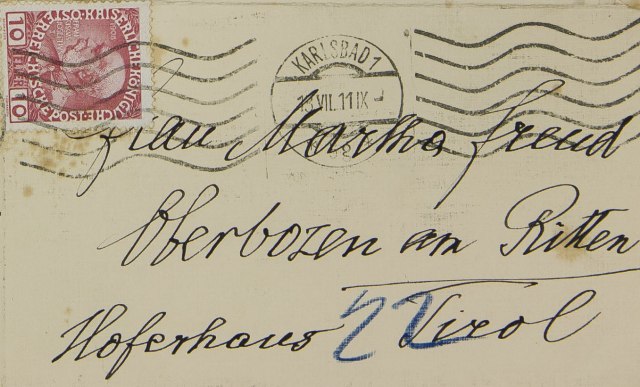 10 10
KAISERLICHE KÖNIGL
POST
KARLSBAD 1
13 VII. 11 IX
Frau Martha Freud
Oberbozen am Ritten
Hoferhaus Tirol